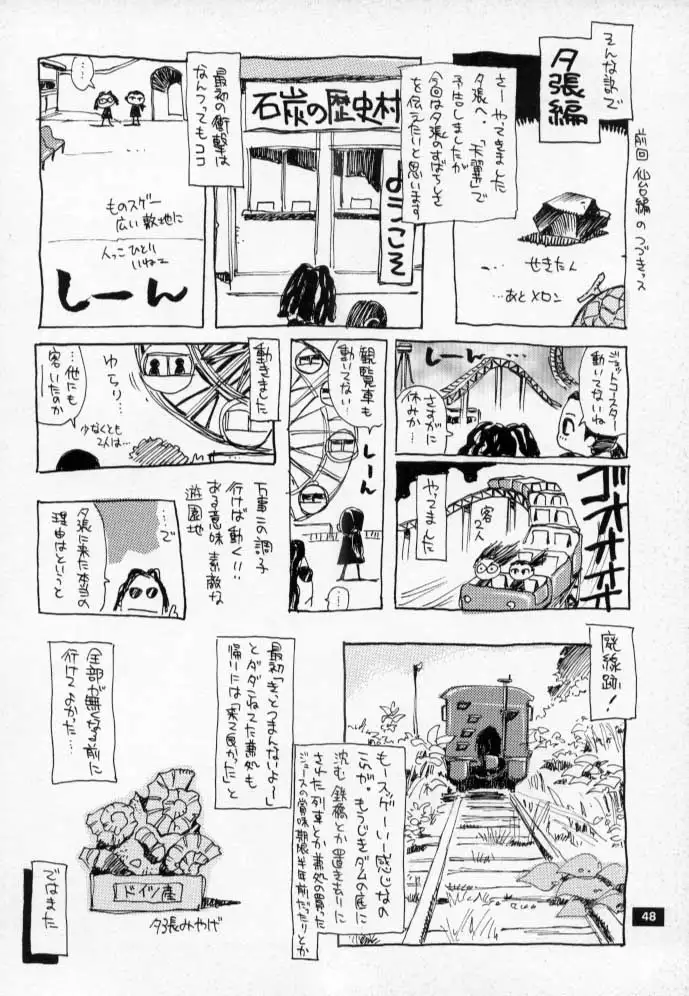 そんな訳で
夕張編
前回 仙台編のつづきッス
さーやってきました
夕張へ。「天翼」で
予告しましたが
今回は夕張のすばらしさ
を伝えたいと思います。
せきたん
…あとメロン
石炭の歴史村
ようこそ
最初の衝撃は
なんつってもココ
……
ものスゲー
広い敷地に
人っこひとり
いねェ
しーん
ジェットコースター
動いてないね
しーん…
さすがに
休みか…
ゴオオオオ
客2人
やってました
観覧車も
動いてない
しーん
…
動きました
ゆらり…
…他にも
客いたのか
少なくとも
2人は…
万事この調子
行けば動く!!
ある意味 素敵な
遊園地
…で
夕張に来た本当の
理由はというと
廃線跡!
もースゲーいー感じなの
これが。もうじきダムの底に
沈む 鉄橋とか 置き去りに
された列車とか 兼処の買った
ジュースの賞味期限半年前だったりとか
最初「きっとつまんないよー」
とダダこねてた兼処も
帰いには「来て良かった」と
全部が無くなる前に
行けてよかった…
ドイツ産
夕張みやげ
ではまた
48